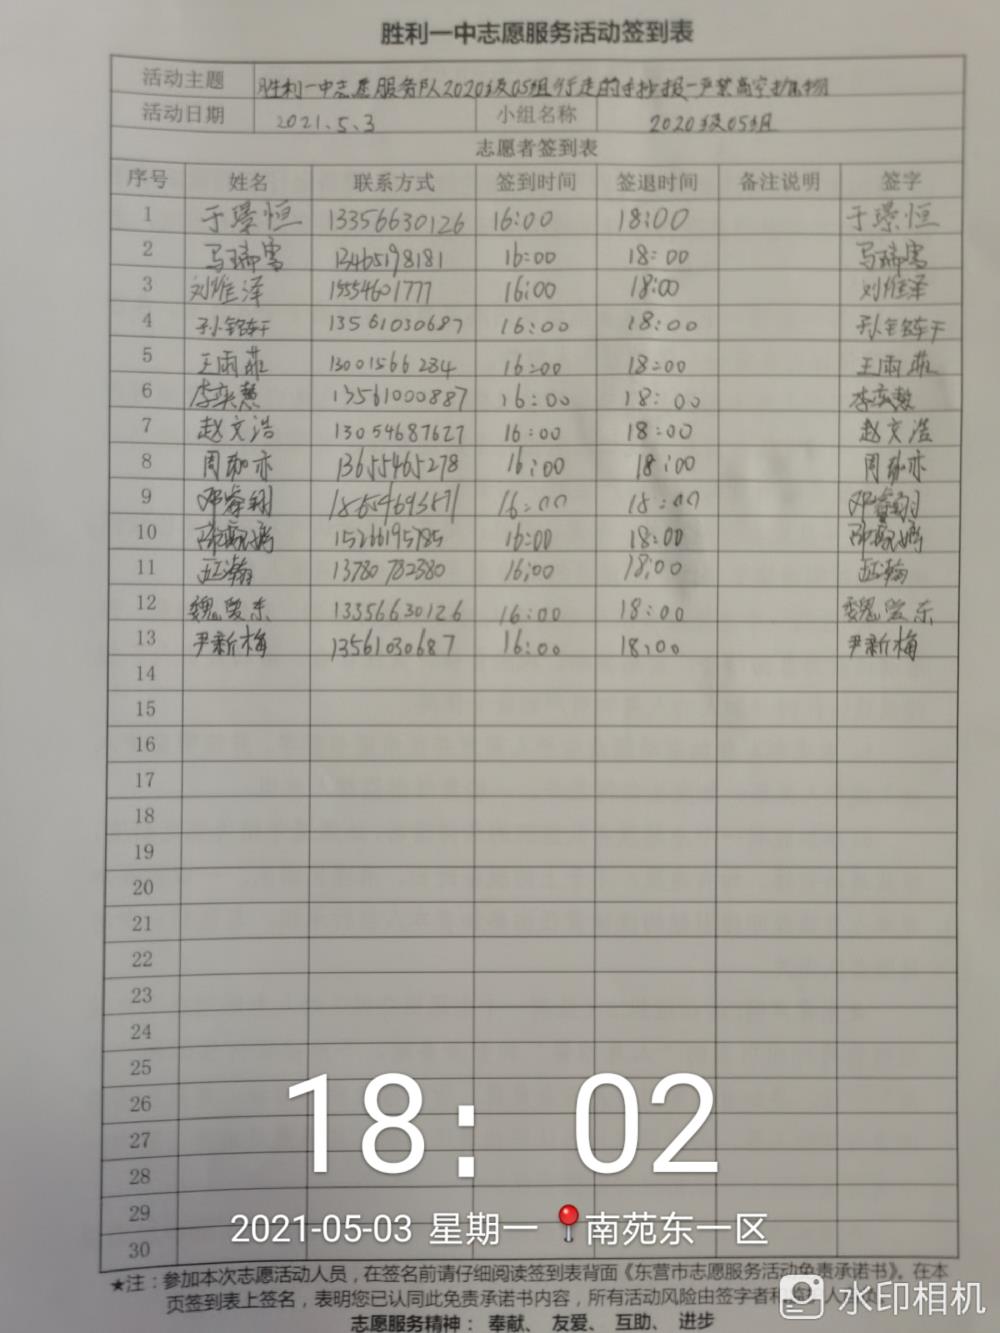 胜利一中志愿服务活动签到表
活动主题 胜利一中志愿服务队2020级05组行走的手抄报-严禁高空抛物
活动日期 2021.5.3 小组名称 2020级05组
志愿者签到表
序号 姓名 联系方式 签到时间 签退时间 备注说明 签字
1 于璟恒 13356630126 16:00 18:00 于璟恒
2 马瑞雪 13465198181 16:00 18:00 马瑞雪
3 刘维泽 15554601777 16:00 18:00 刘维泽
4 孙铭轩 13561030687 16:00 18:00 孙铭轩
5 王雨菲 13001566284 16:00 18:00 王雨菲
6 李奕慧 13561000887 16:00 18:00 李奕慧
7 赵文浩 13054687627 16:00 18:00 赵文浩
8 周珈亦 13655465278 16:00 18:00 周珈亦
9 邓睿翔 16:00 18:00 邓睿翔
10 15266195785 16:00 18:00
11 13780782380 16:00 18:00
12 魏 东 13356630126 16:00 18:00 魏 东
13 尹新梅 13561030687 16:00 18:00 尹新梅
14
15
16
17
18
19
20
21
22
23
24
25
26
27
28
29
30
18:02
2021-05-03 星期一 南苑东一区
★注：参加本次志愿活动人员，在签名前请仔细阅读签到表背面《东营市志愿服务活动免责承诺书》。在本
页签到表上签名，表明您已认同此免责承诺书内容，所有活动风险由签字者和
水印相机
志愿服务精神：奉献、友爱、互助、进步